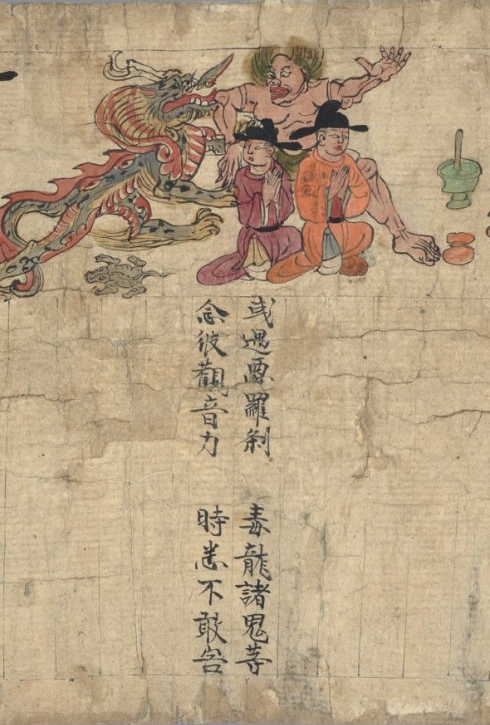 或遇惡羅刹　毒龍諸鬼等
念彼觀音力　時悉不敢害